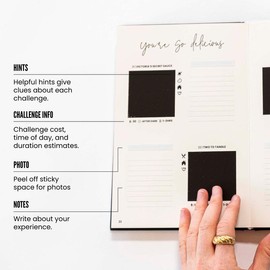 You're so delicious
HINTS
Helpful hints give
clues about each
challenge.
CHALLENGE INFO
Challenge cost,
time of day, and
duration estimates.
PHOTO
Peel off sticky
space for photos
NOTES
Write about your
experience.